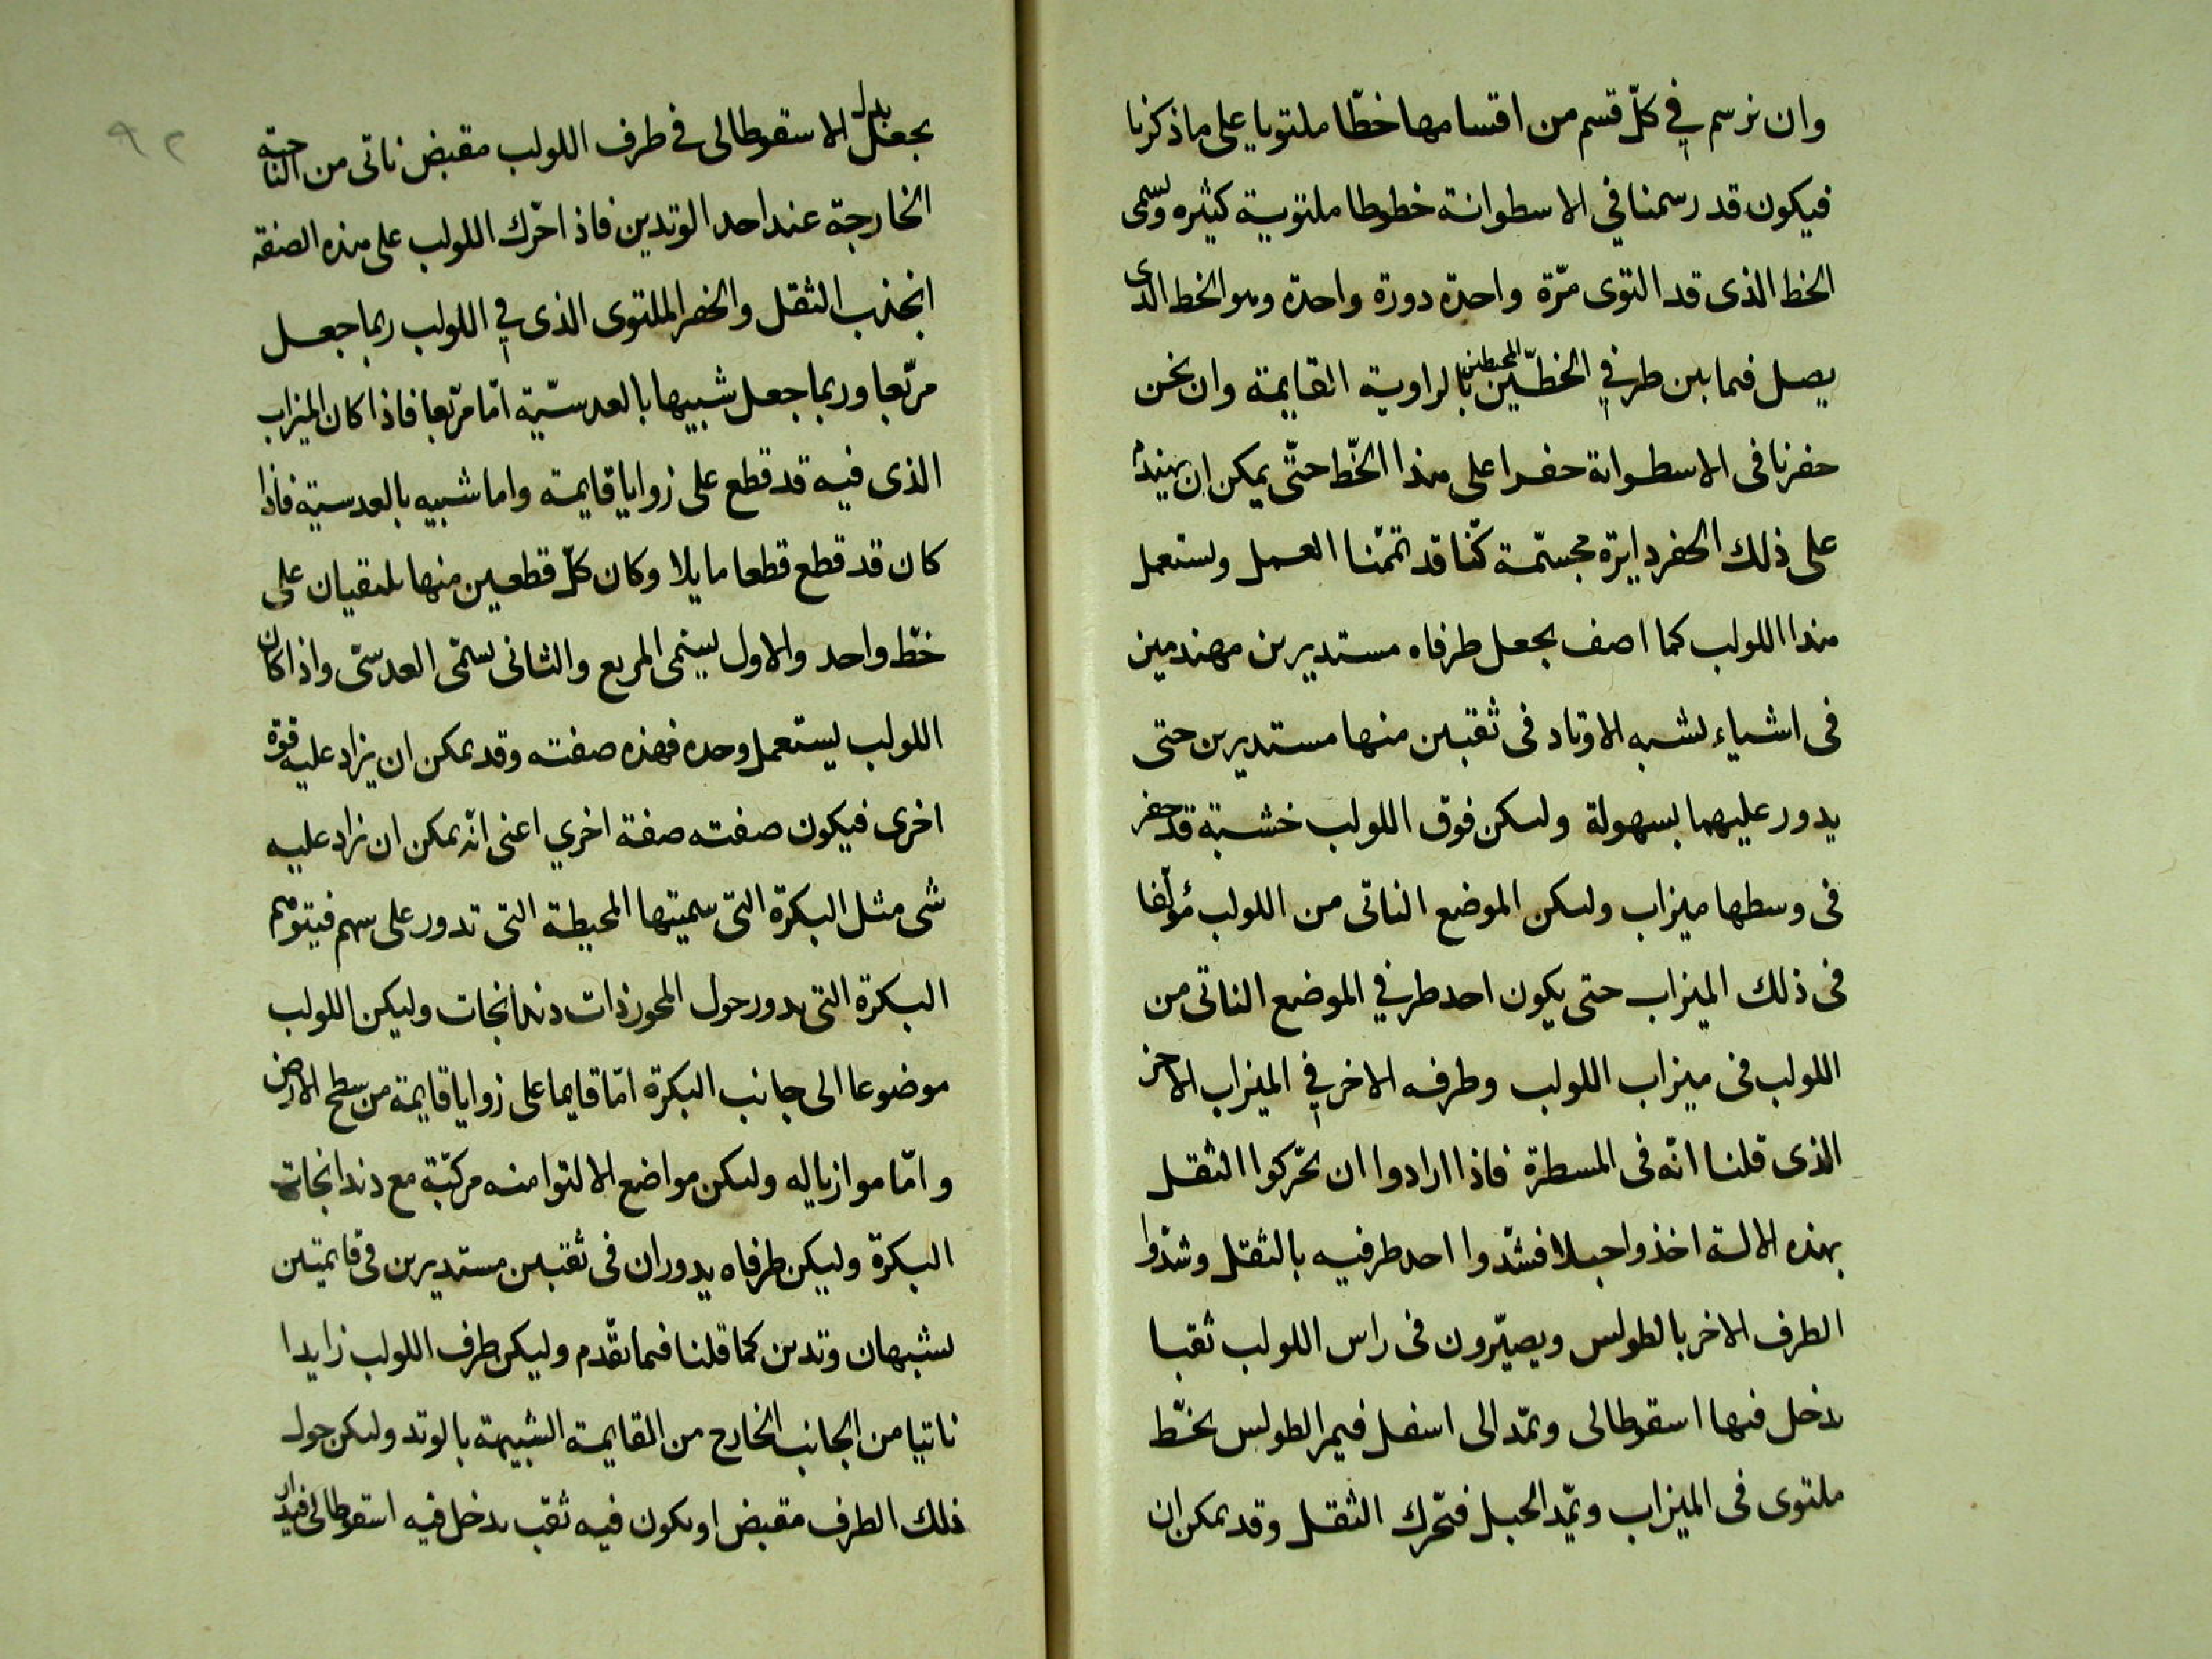 وان نرسم في كلّ قسم من اقسامها خطّا ملتويا على ما ذكرنا
فيكون قد رسمنا في الاسطوانة خطوطا ملتوية كثيره وسمى
الخط الذى قد التوى مرّة واحدة دورة واحدة وهو الخط الذى
يصل فيما بين طرفي الخطّين المحيطين بالزاوية القايمة وان نحن
حفرنا فى الاسطوانة حفرا على هذا الخّط حتّى يمكن ان
على ذلك الحفر دايرة مجسّمة كنّا قد تممّنا العمل ولستعمل
هذا اللولب كما اصف يجعل طرفاه مستديرين مهندمين
فى اشياء لشبه الاوتاد فى ثقبين منها مستديرين حتى
يدور عليهما بسهولة وليكن فوق اللولب خشبة قد حفر
فى وسطها ميزاب وليكن الموضع الناتى من اللولب مؤلّفا
فى ذلك الميزاب حتى يكون احد طرفي الموضع الناتى من
اللولب فى ميزاب اللولب وطرفه الاخر في الميزاب الاخر
الذى قلنا انّه فى المسطرة فاذا ارادوا ان يحّركوا الثقل
بهذه الالة اخذوا حبلا فشّدوا احد طرفيه بالثقل وشدّوا
الطرف الاخر بالطولس ويصيّرون فى راس اللولب ثقبا
يدخل فيها اسقوطالى ويمّد الى اسفل فيمر الطولس بخّط
ملتوى فى الميزاب ويمّد الحبل فتحّرك الثقل وقد يمكن ان
يجعل بدل الاسقوطالى فى طرف اللولب مقبض ناتى من الناحية
الخارجة عند احد الوتدين فاذا حّرك اللولب على هذه الصفة
انجذب الثقل والحفر الملتوى الذى في اللولب ربما جعل
مربّعا وربما جعل شبيها بالعدسّية امّا مربّعا فاذا كان الميزاب
الذى فيه قد قطع على زوايا قايمة واما شبيه بالعدستية فاذا
كان قد قطع قطعا مايلا وكان كلّ قطعين منها يلتقيان على
خطّ واحد والاول يسّمى المربع والثانى يسمّى العدسّى واذا كان
اللولب ليستعمل وحده فهذه صفته وقد يمكن ان يزاد عليه قوة
اخرى فيكون صفته صفة اخري اعنى انّه يمكن ان نزاد عليه
شى مثل البكرة التى سميتها المحيطة التى تدور على سهم فيتوهّم
البكرة التى تدور حول المحور ذات دندانجات وليكن اللولب
موضوعا الى جانب البكرة امّا قايما على زوايا قايمة من سطح الارض
وامّا موازيا له وليكن مواضع الالتوا منه مركّبة مع دندانجات
البكرّة وليكن طرفاه يدوران فى ثقبين مستديرين فى قايمتين
لشبهان وتدين كما قلنا فيما تقّدم وليكن طرف اللولب زايدا
ناتيا من الجانب الخارج من القايمة الشبيهة بالوتد وليكن حول
ذلك الطرف مقبض او يكون فيه ثقب يدخل فيه اسقوطالى فيدار
٩٢